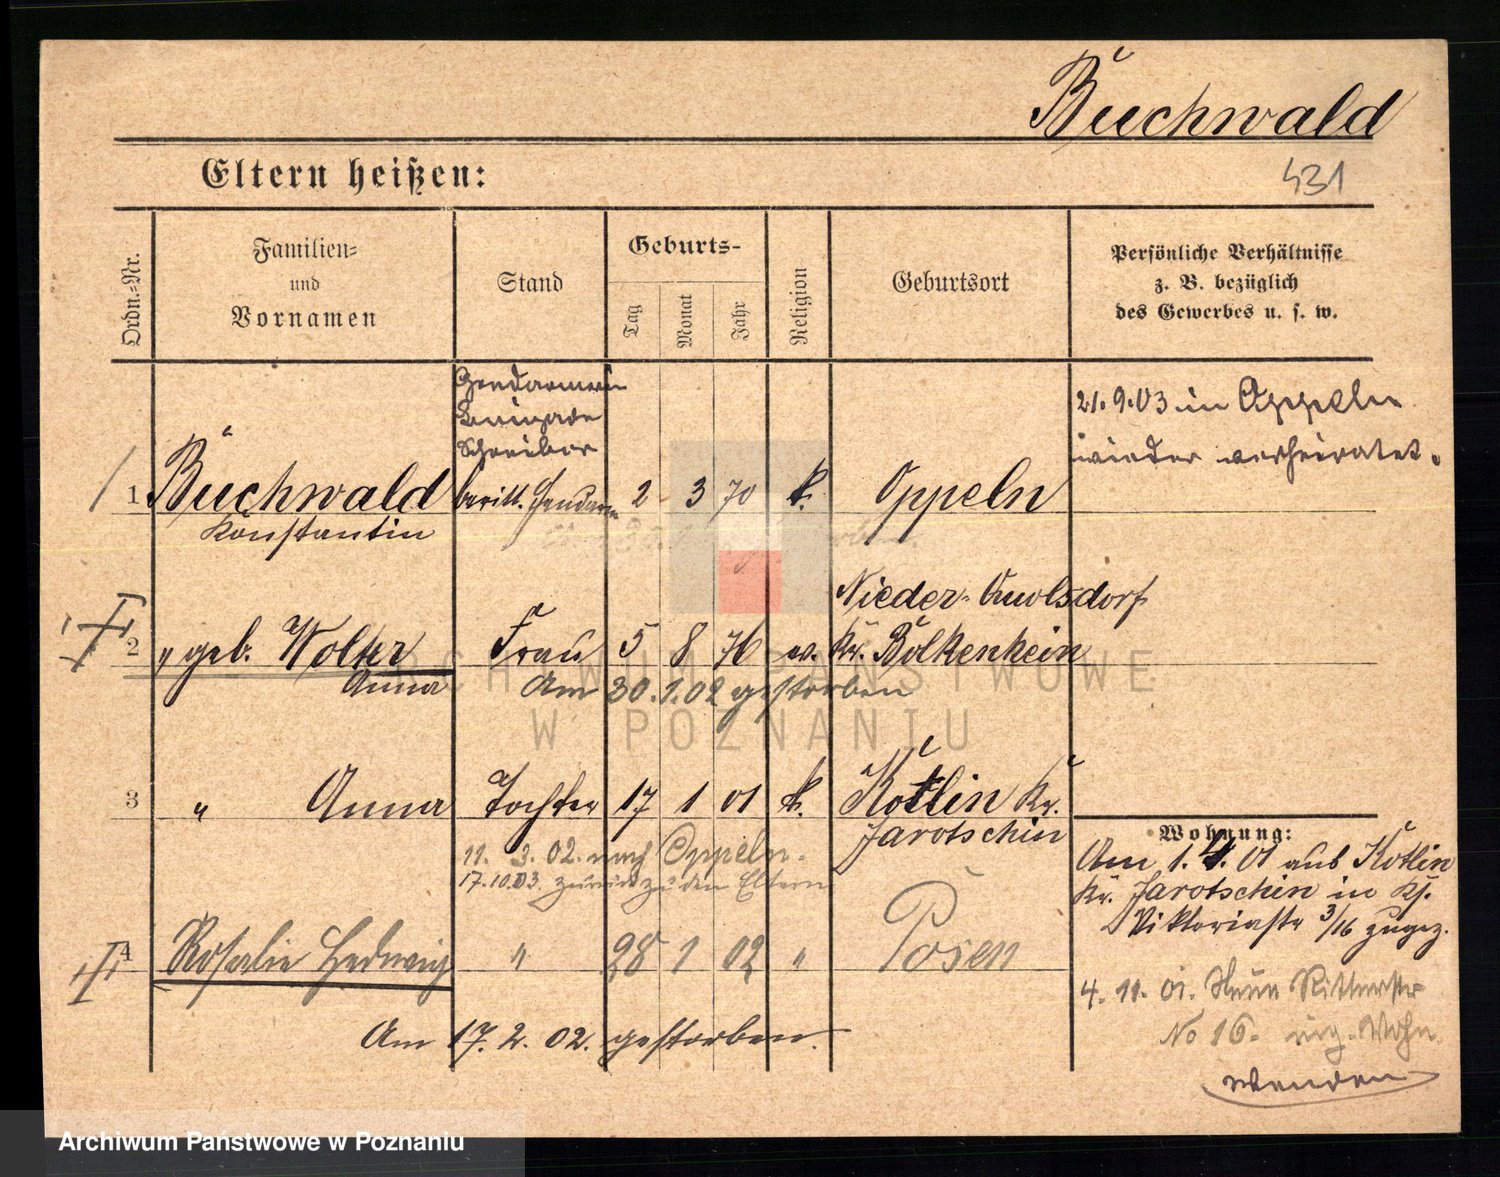 Buchwald
431
Eltern heißen:
Ordn.-Nr.
Familien-
und
Vornamen
Stand
Geburts-
Tag
Monat
Jahr
Religion
Geburtsort
Persönliche Verhältnisse
z. B. bezüglich
des Gewerbes u. s. w.
Gendarmerie
Brigade
Schreiber
21.9.03 in Oppeln
wieder verheiratet.
1 Buchwald beritt. Gendarm 2 3 70 k. Oppeln
Konstantin
Nieder-
2 geb. Wolter Frau 5 8 76 ev. Kr. Bolkenhein
Anna Am 30.1.02 gestorben
3 " Anna Tochter 17 1 01 k. Kotlin Kr.
Jarotschin
11. 3. 02. nach Oppeln.
17.10.03. zurück zu den Eltern
Wohnung:
Am 1. 4. 01 aus Kotlin
Kr. Jarotschin in
Viktoriastr 3/16 zugez.
4 Rosalie Hedwig " 28 1 02 " Posen
Am 17. 2. 02. gestorben.
4. 11. 01. Neue Ritterstr
No 16. Wohn.
wenden
ARCHIWUM PAŃSTWOWE
W POZNANIU
Archiwum Państwowe w Poznaniu